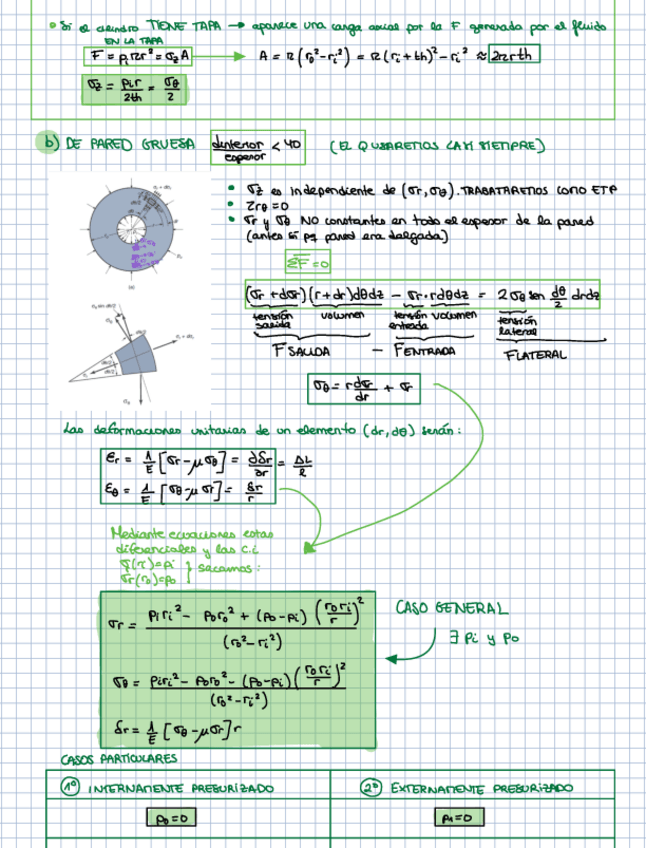 • Si el cilindro TIENE TAPA → aparece una carga axial por la F generada por el fluido
EN LA TAPA
F = piπr² = σz A → A = π(ro²-ri²) = π(ri+th)²-ri² ≈ 2πrth
σz = pir/2th = σθ/2
b) DE PARED GRUESA dinterior/espesor < 40 (EL Q USAREMOS CASI SIEMPRE)
• σz es independiente de (σr, σθ). TRABAJAREMOS COMO ETP
• τrθ = 0
• σr y σθ NO constantes en todo el espesor de la pared
(antes sí pq pared era delgada)
ΣF = 0
(σr + dσr)(r+dr)dθdz - σr·rdθdz = 2σθ sen dθ/2 drdz
tensión salida volumen tensión entrada volumen tensión lateral
FSALIDA - FENTRADA FLATERAL
σθ = r dσr/dr + σr
Las deformaciones unitarias de un elemento (dr, dθ) serán:
εr = 1/E [σr-μσθ] = ∂δr/∂r = ΔL/L
εθ = 1/E [σθ-μσr] = δr/r
Mediante ecuaciones estas
diferenciales y las c.i
σr(ri)=pi
σr(ro)=po } sacamos:
σr = piri² - poro² + (po-pi)(rori/r)² / (ro²-ri²)
CASO GENERAL
∃ pi y po
σθ = piri² - poro² - (po-pi)(rori/r)² / (ro²-ri²)
δr = 1/E [σθ-μσr]r
CASOS PARTICULARES
1º INTERNAMENTE PRESURIZADO
2º EXTERNAMENTE PRESURIZADO
po=0
pi=0